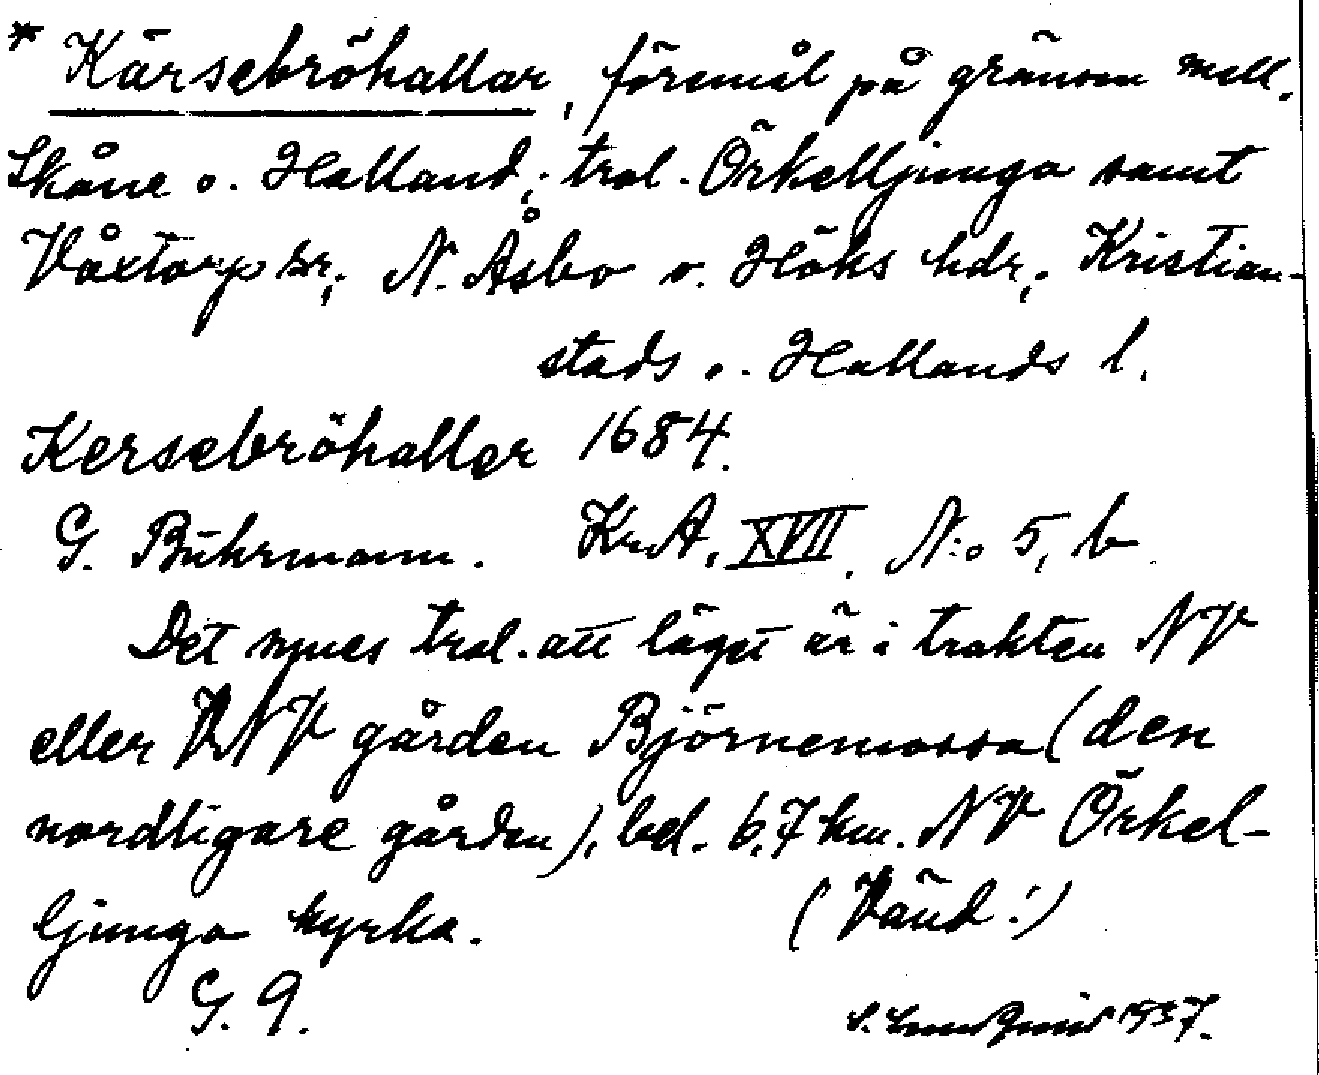 * Kärsebröhallar, föremål på gränsen mell.
Skåne o. Halland; trol. Örkelljunga samt
Våxtorp sr; N. Åsbo o. Höks hdr; Kristian-
stads o. Hallands l.
Kersebröhaller 1684.
G. Buhrmann. Kr.A. XVII. N:o 5, b
Det synes trol. att läget är i trakten NV
eller VNV gården Björnemossa (den
nordligare gården), bel. 6,7 km. NV Örkel-
ljunga kyrka. (Vänd!)
G. 9. 1937.